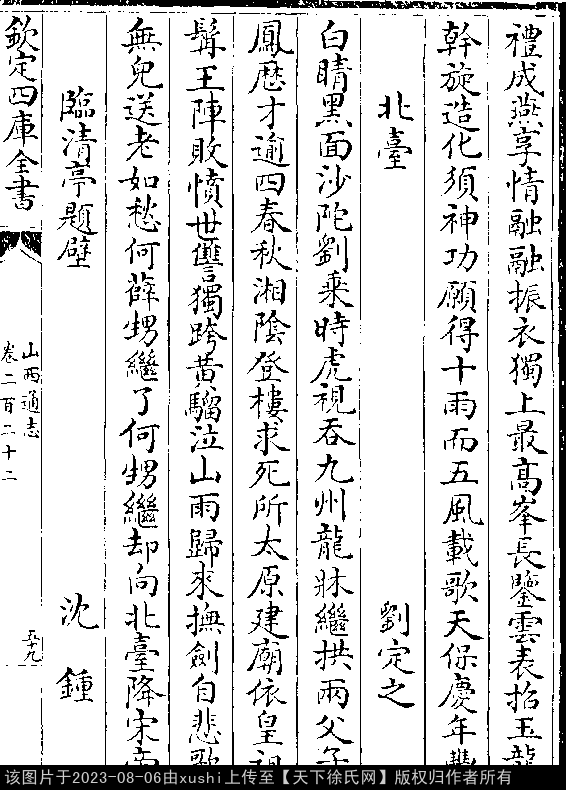 禮成燕享情融融振衣獨上最高峯長鑒雲表招玉龍
幹旋造化須神功願得十雨而五風載歌天保慶年豐
北臺 劉定之
白睛黑面沙陀劉乗時虎視吞九州龍牀繼拱兩父子
鳳歴才逾四春秋湘陰登樓求死所太原建廟依皇祖
髯王陣敗憤世讐獨跨黄騮泣山雨歸來撫劍自悲歌
無兒送老如愁何薛甥繼了何甥繼却向北臺降宋
臨清亭題壁 沈鍾
欽定四庫全書
山西通志
卷二百二十二
五十九
该图片于2023-08-06由xushi上传至【天下徐氏网】版权归作者所有